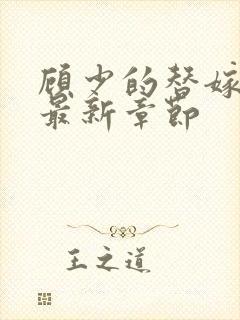 顾少的替嫁
最新章节
王之道